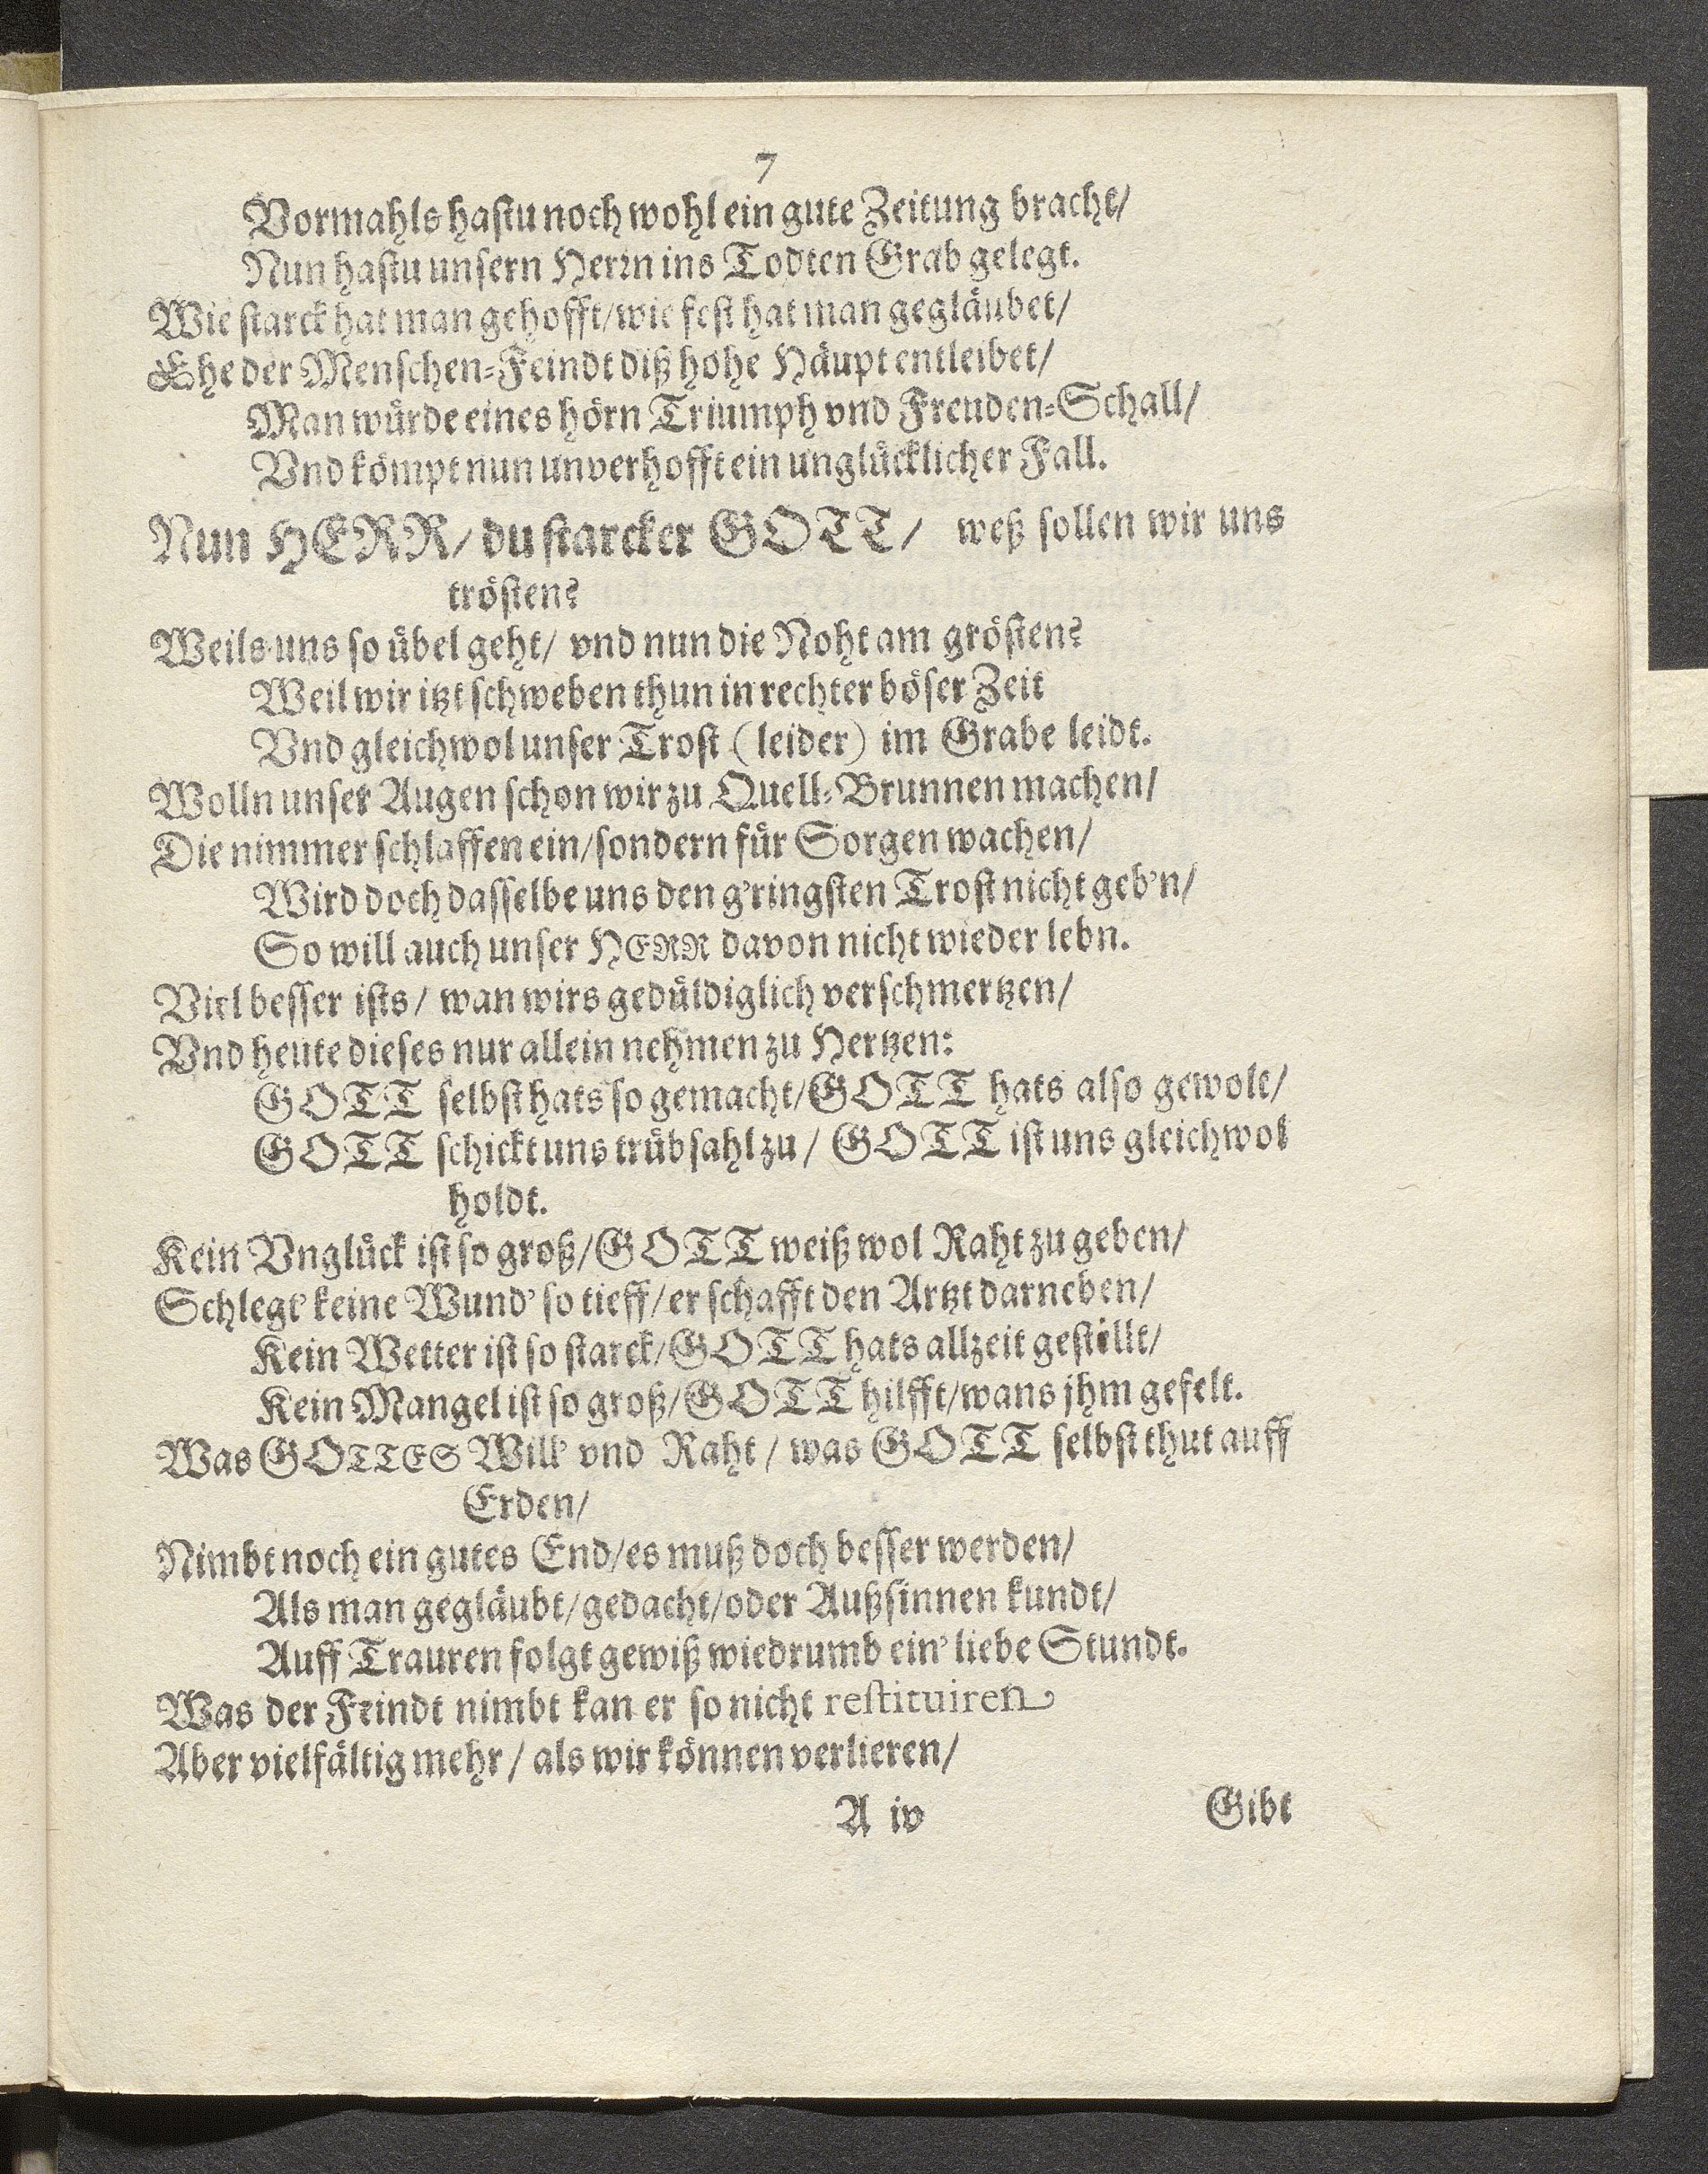 7
Vormahls hastu noch wohl ein gute Zeitung bracht/
Nun hastu unsern Herrn ins Todten Grab gelegt.
Wie starck hat man gehofft/wie fest hat man gegläubet/
Ehe der Menschen=Feindt diß hohe Häupt entleibet/
Man würde eines hörn Triumph vnd Freuden=Schall/
Vnd kömpt nun unverhofft ein unglücklicher Fall.
Nun HERR/ du starcker GOTT/ weß sollen wir uns
trösten?
Weils uns so übel geht/ vnd nun die Noht am grösten?
Weil wir itzt schweben thun in rechter böser Zeit
Vnd gleichwol unser Trost (leider) im Grabe leidt.
Wolln unser Augen schon wir zu Quell=Brunnen machen/
Die nimmer schlaffen ein/sondern für Sorgen wachen/
Wird doch dasselbe uns den g'ringsten Trost nicht geb'n/
So will auch unser HERR davon nicht wieder lebn.
Viel besser ists/ wan wirs gedüldiglich verschmertzen/
Vnd heute dieses nur allein nehmen zu Hertzen:
GOTT selbst hats so gemacht/GOTT hats also gewolt/
GOTT schickt uns trübsahl zu/ GOTT ist uns gleichwol
holdt.
Kein Vnglück ist so groß/GOTT weiß wol Raht zu geben/
Schlegt' keine Wund' so tieff/er schafft den Artzt darneben/
Kein Wetter ist so starck/GOTT hats allzeit gestillt/
Kein Mangel ist so groß/GOTT hilfft/wans jhm gefelt.
Was GOTTES Will' vnd Raht/ was GOTT selbst thut auff
Erden/
Nimbt noch ein gutes End/es muß doch besser werden/
Als man gegläubt/gedacht/oder Außsinnen kundt/
Auff Trauren folgt gewiß wiedrumb ein' liebe Stundt.
Was der Feindt nimbt kan er so nicht restituiren
Aber vielfältig mehr/ als wir können verlieren/
A iv Gibt